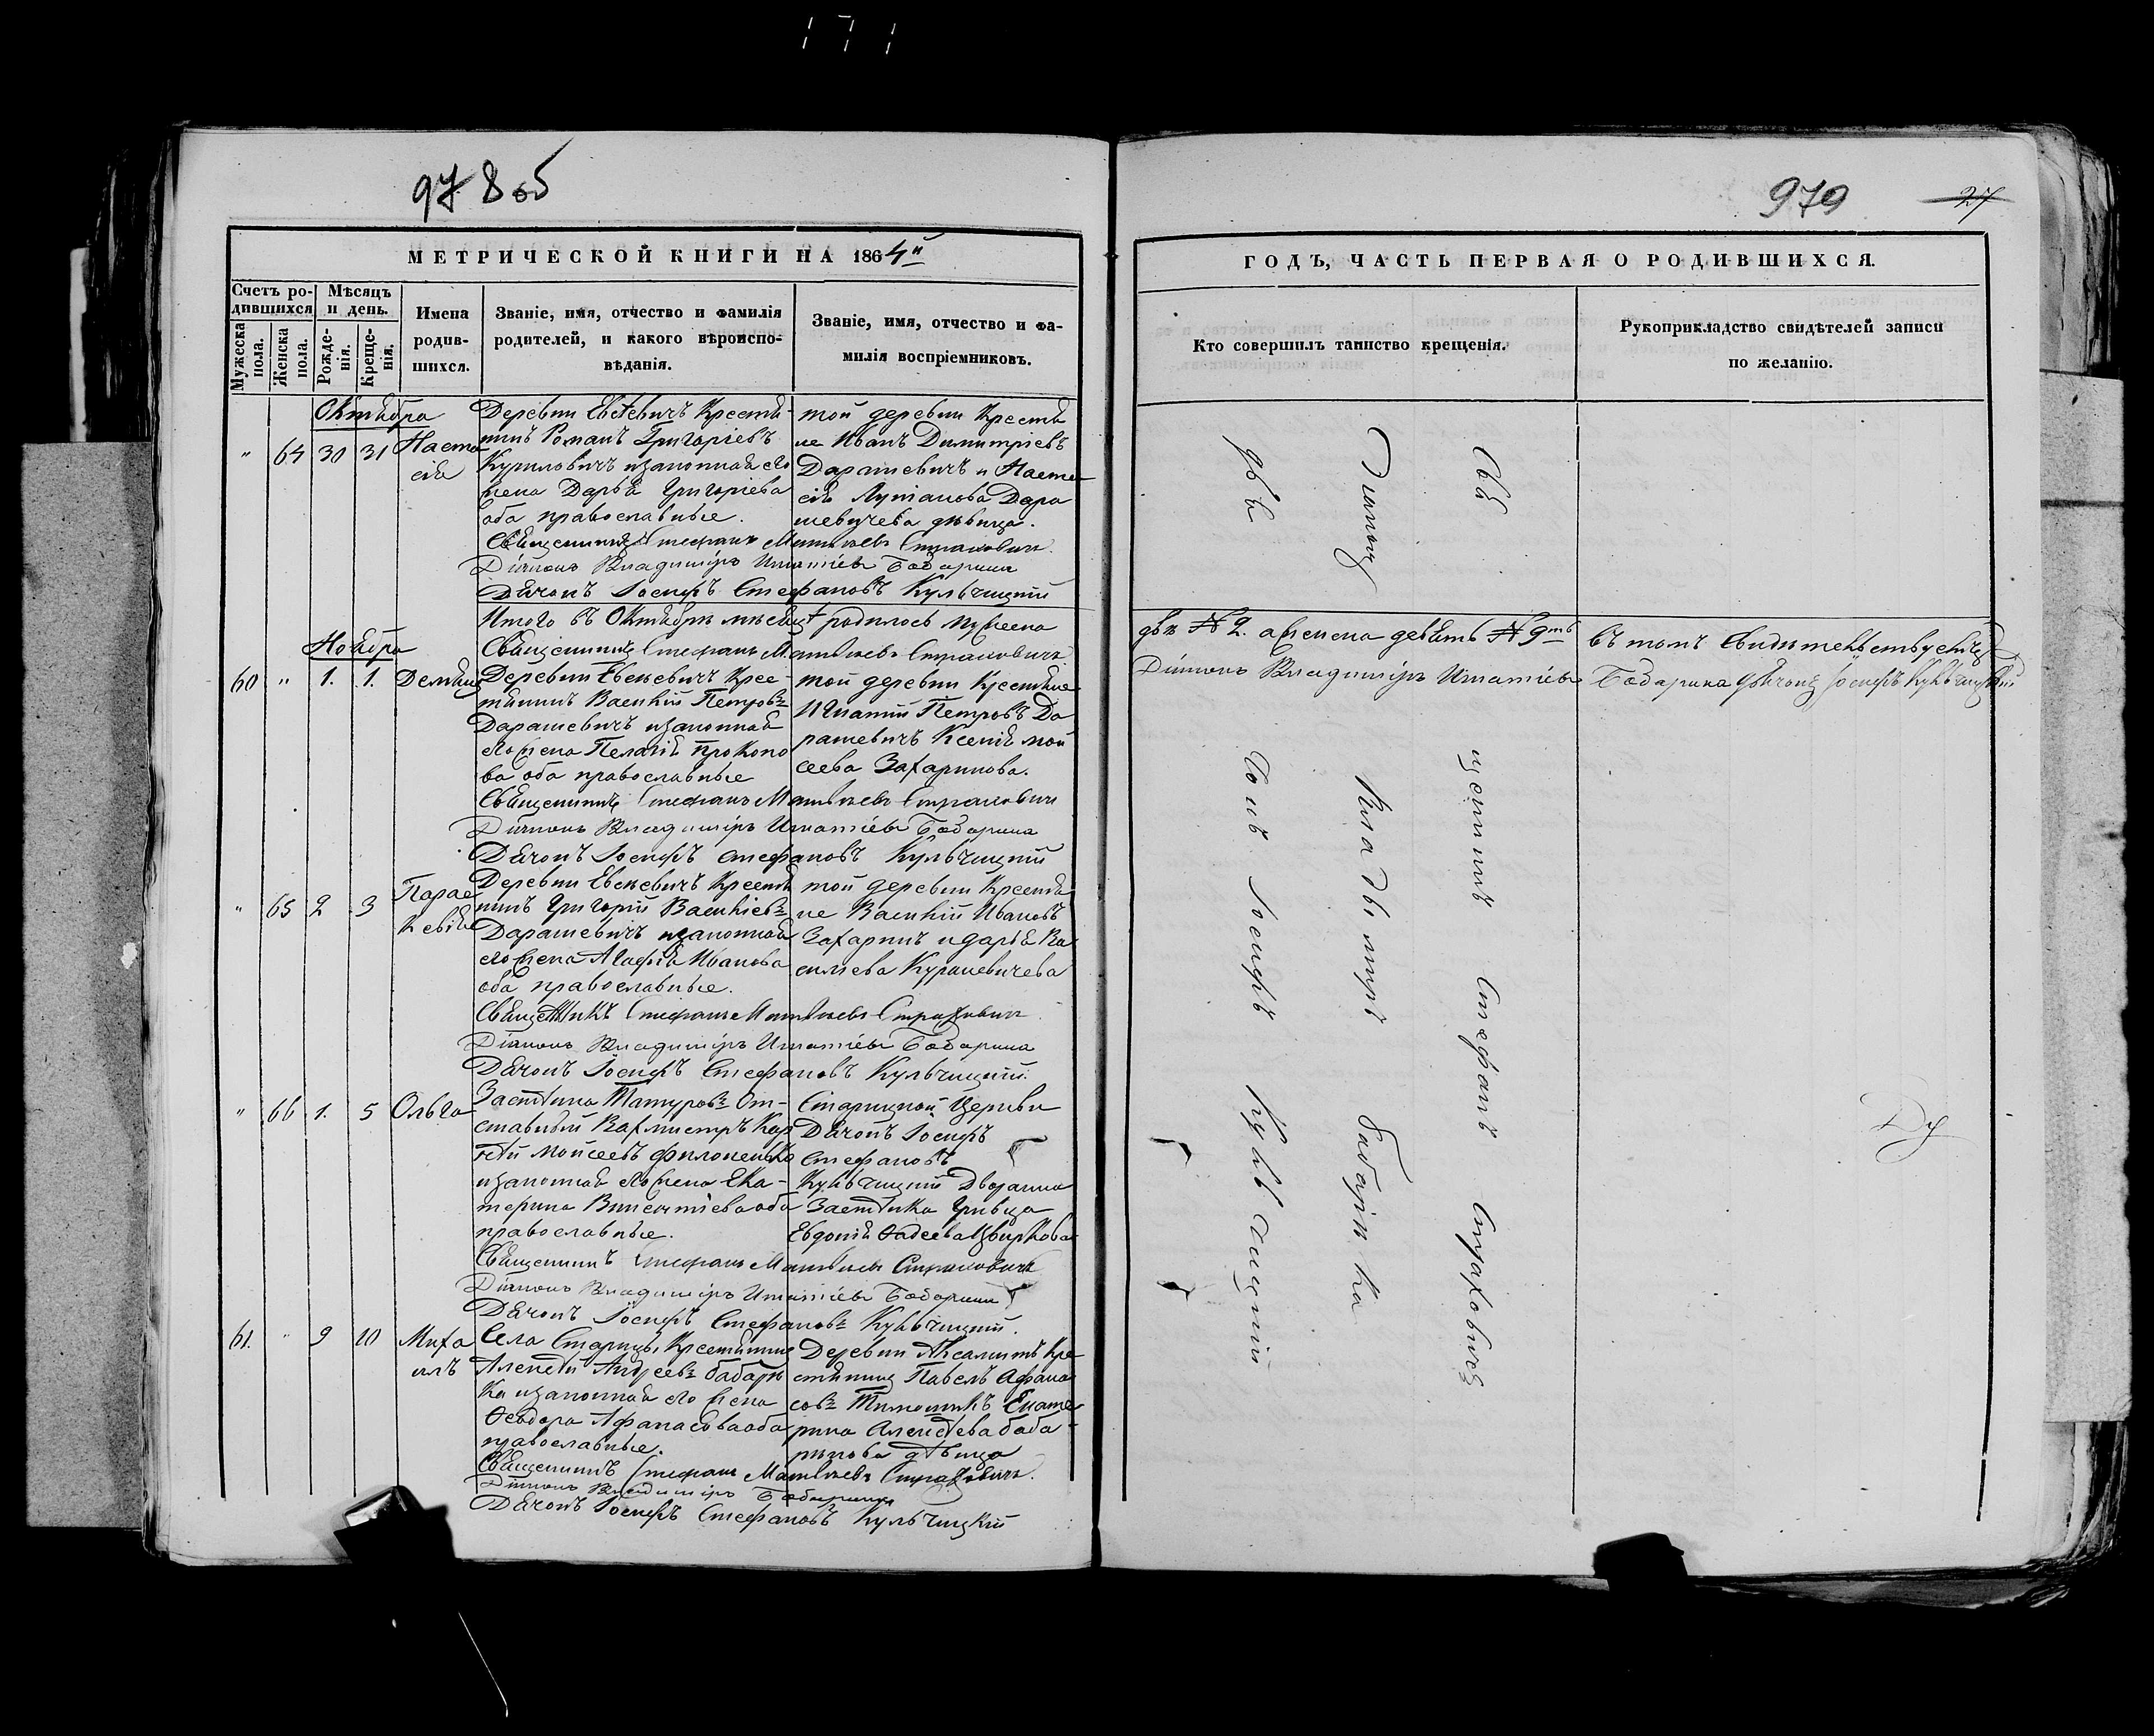 171
978 об
979
27
МЕТРИЧЕСКОЙ КНИГИ НА 1864й
Счетъ ро-
дившихся
Мѣсяцъ
и день.
Мужеска
пола.
Женска
пола.
Рожде-
нія.
Креще-
нія.
Имена
родив-
шихся.
Званіе, имя, отчество и фамилія
родителей, и какого вѣроиспо-
вѣданія.
Званіе, имя, отчество и фа-
милія воспріемниковъ.
Октября
" 64 30 31 Наста
сія
Деревни Евсевичъ Крестья-
нинъ Романъ Григоріевъ
Куриловичъ изаконная его
жена Дарья Григоріева
оба православные.
той деревни Крестья
не Иванъ Димитріевъ
Дарашевичъ и Наста
сія Лукіанова Дара
шевичева дѣвица.
Священникъ Стефанъ Матвѣевъ Страховичъ
Діаконъ Владиміръ Игнатіевъ Бабарика
Дьячонъ Іосифъ Стефановъ Кульчицкій
Итого въ Октябрѣ мѣсяцѣ родилось мужеска
Священникъ Стефанъ Матвѣевъ Страховичъ
Ноября
60 " 1. 1. Деміянъ
Деревни Евсевичъ Крес-
тьянинъ Василій Петровъ
Дарашевичъ изаконная
его жена Пелагія Прокопо
ва оба православные
той деревни Крестьяне
Игнатій Петровъ Да
рашевичъ Ксенія Мои
сеева Захаринова.
Священникъ Стефанъ Матвѣевъ Страховичъ
Діаконъ Владиміръ Игнатіевъ Бабарика
Дьячонъ Іосифъ Стефановъ Кульчицкій
" 65 2 3 Парас
кевія
Деревни Евсевичъ Крестья
нинъ Григорій Василіевъ
Дарашевичъ изаконная
его жена Агафія Иванова
оба православные.
той деревни Крестья
не Василій Ивановъ
Захаринъ и дарья Ва
силіева Курилевичева
Священникъ Стефанъ Матвѣевъ Страховичъ
Діаконъ Владиміръ Игнатіевъ Бабарика
Дьячонъ Іосифъ Стефановъ Кульчицкій.
" 66 1. 5 Ольга
Застѣнка Татуровъ От-
ставный Вахмистръ
Моисеевъ Филоненко
изаконная его жена Ека-
терина Викентіева оба
православные.
Старицкой Церкви
Дьячонъ Іосифъ
Стефановъ
Кульчицкій Дворянка
Застѣнка Гривца
Евдокія Фадеева
Священникъ Стефанъ Матвѣевъ Страховичъ
Діаконъ Владиміръ Игнатіевъ Бабарика
Дьячонъ Іосифъ Стефановъ Кульчицкій.
61. " 9 10 Миха
илъ
Села Старицы, Крестьянинъ
Алексѣй Андреевъ Бабари
ка изаконная его жена
Ѳеодора Афанасьева оба
православные.
Деревни Аксамитъ Кре
стьянинъ Павелъ Афана
совъ Тимошикъ Екате
рина Алексѣева баба
рикова дѣвица
Священникъ Стефанъ Матвѣевъ Страховичъ.
Діаконъ Владиміръ Бабарика
Дьячонъ Іосифъ Стефановъ Кульчицкій
ГОДЪ, ЧАСТЬ ПЕРВАЯ О РОДИВШИХСЯ.
Кто совершилъ таинство крещенія.
Рукоприкладство свидѣтелей записи
по желанію.
два № 2. а женска девять № 9ть въ томъ Свидѣтельствуемъ
Діаконъ Владиміръ Игнатіевъ Бабарика Дьячонъ Іосифъ Кульчицкій
Свя щенникъ Стефанъ Страховичъ
Діаконъ Владиміръ Бабарика
Дья чонъ Іосифъ Кульчицкій